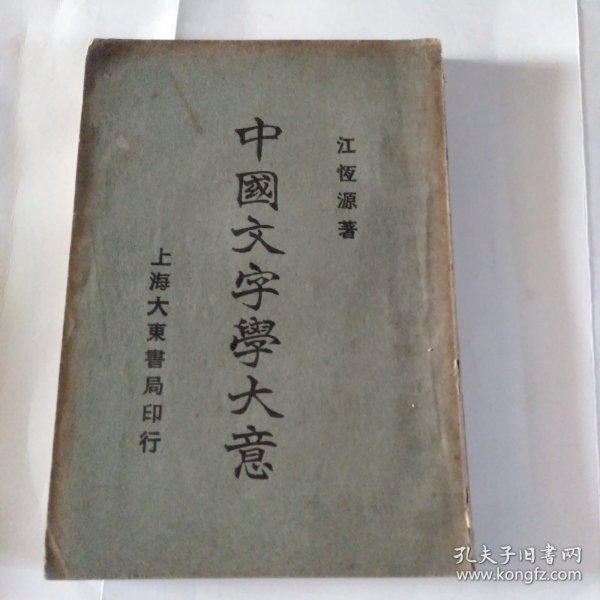 江恆源著
中國文字學大意
上海大東書局印行
孔夫子旧书网
www.kongfz.com